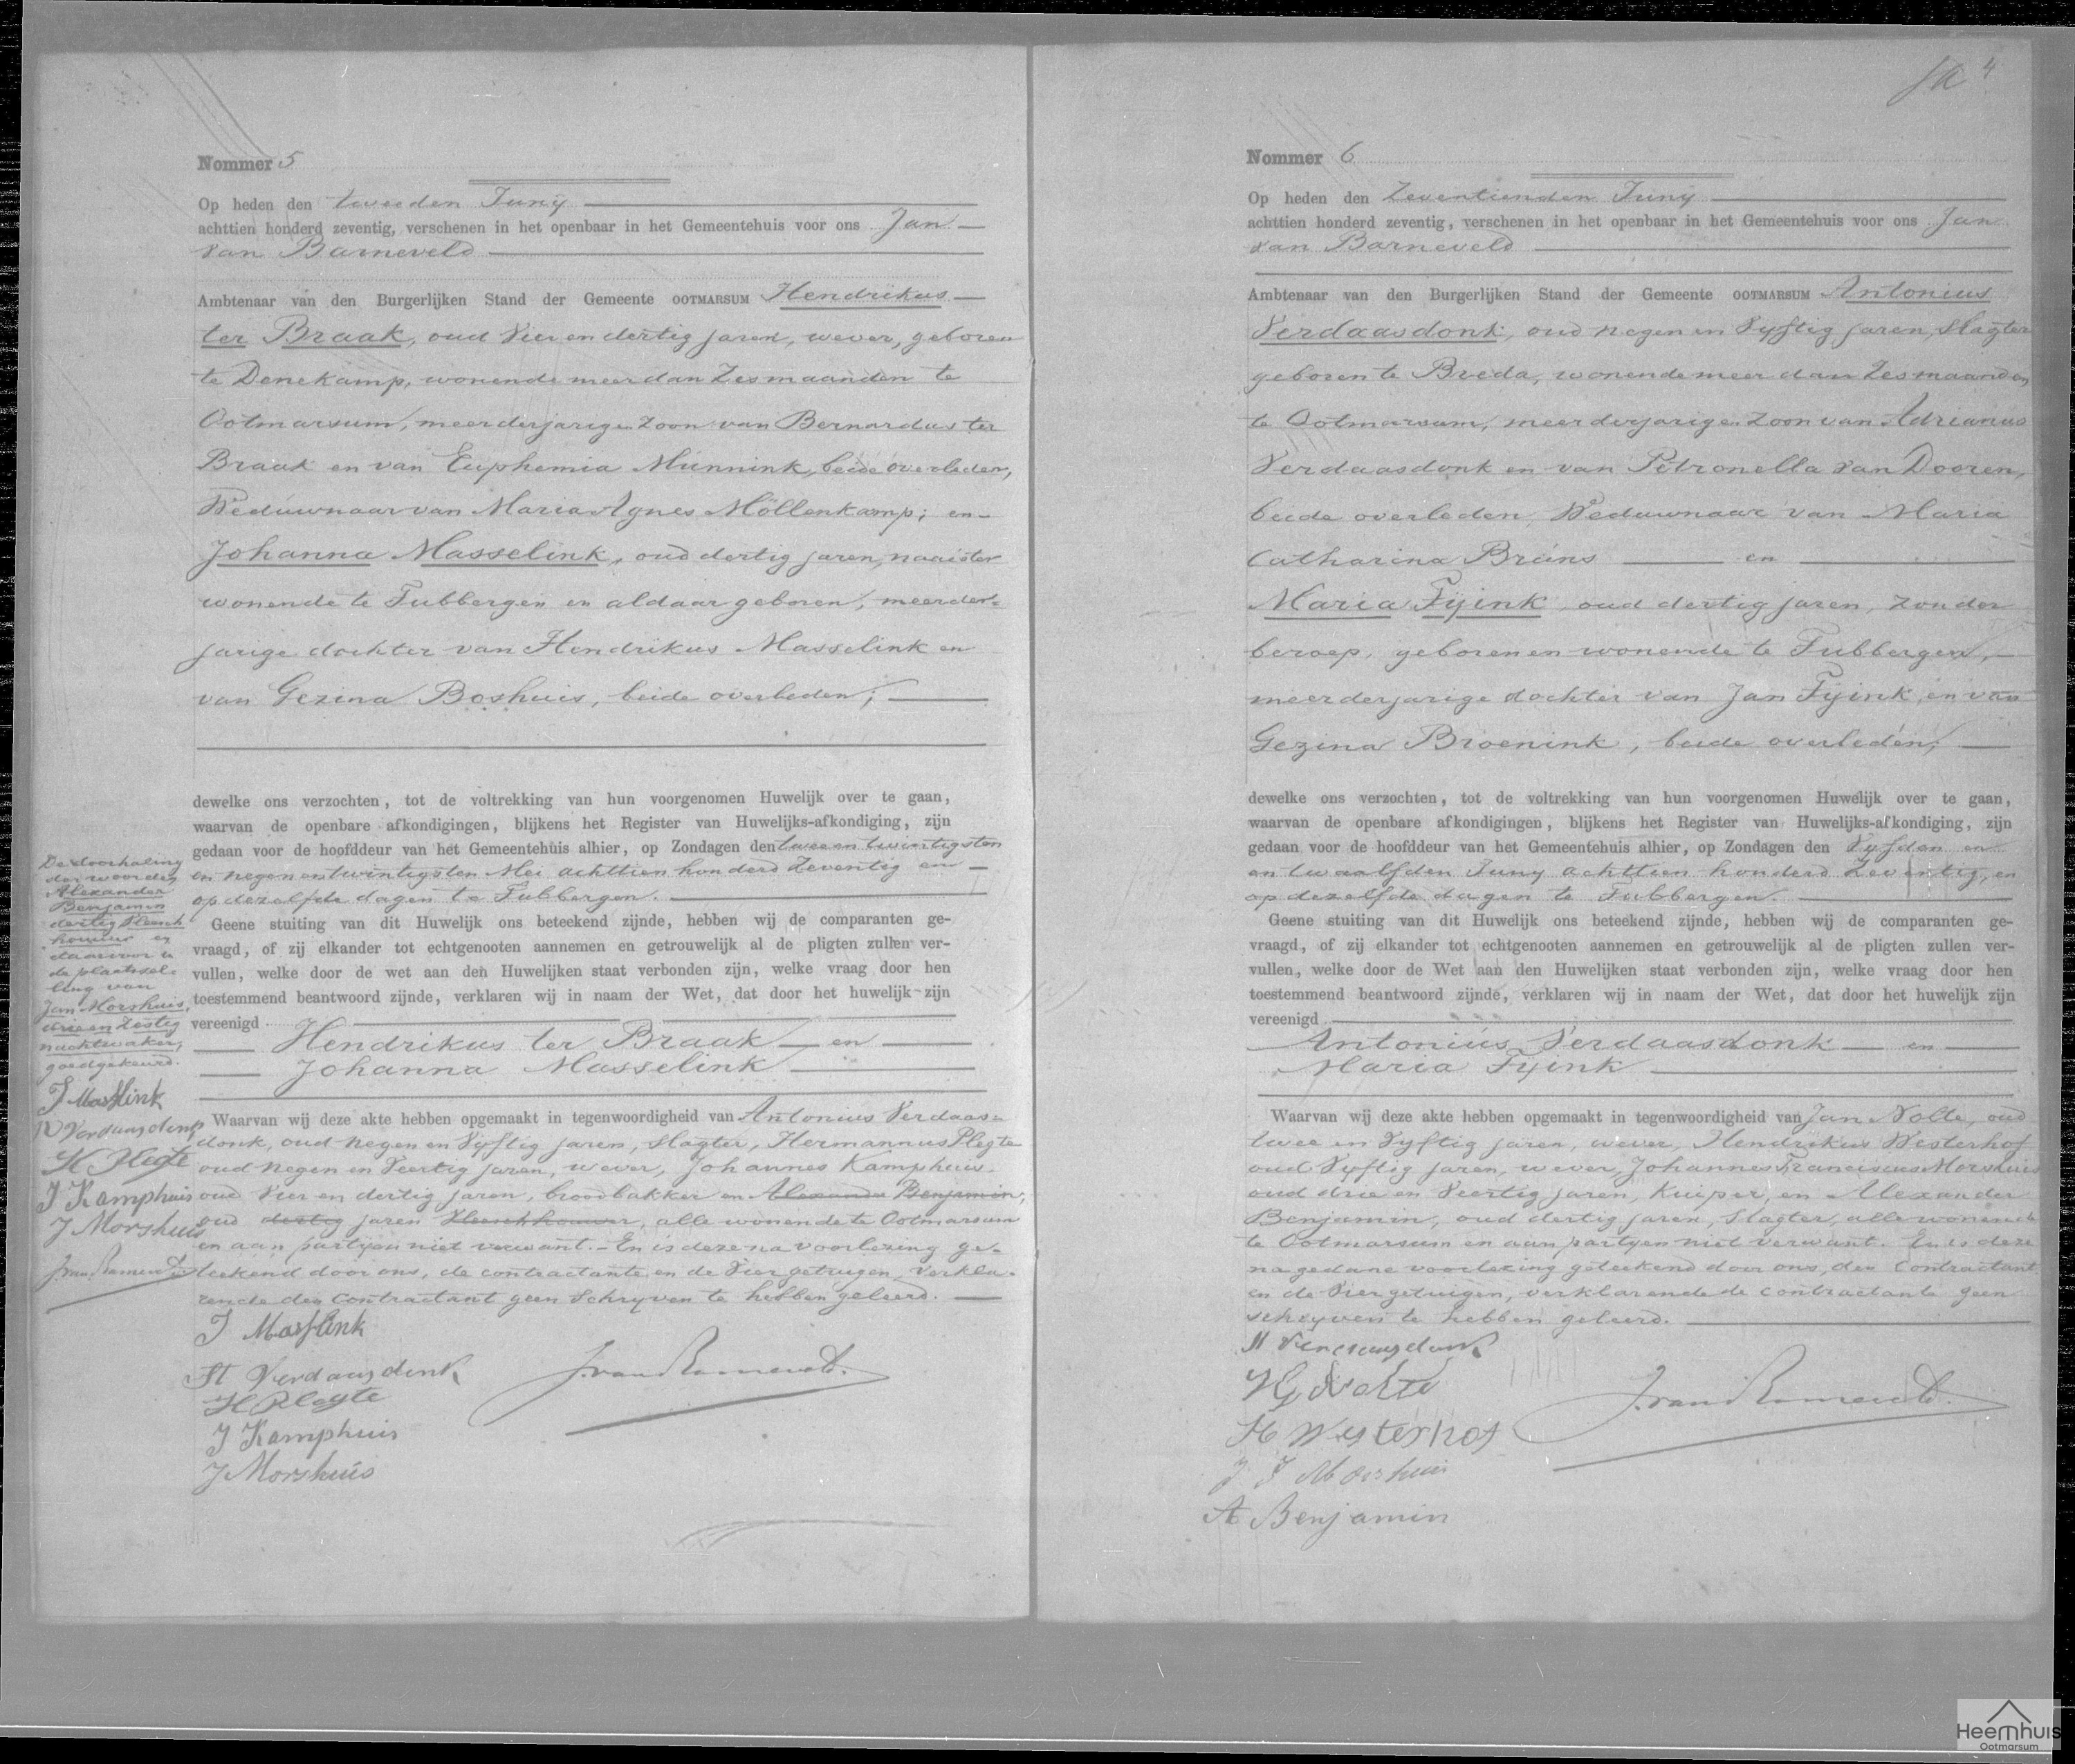 Nommer 5
Op heden den tweeden Juny
achttien honderd zeventig, verschenen in het openbaar in het Gemeentehuis voor ons Jan
van Barneveld
Ambtenaar van den Burgerlijken Stand der Gemeente OOTMARSUM Hendrikus
ter Braak, oud Vier en dertig jaren, wever, geboren
te Denekamp, wonende meer dan Zes maanden te
Ootmarsum, meerderjarigen Zoon van Bernardus ter
Braak en van Euphemia Münnink, beide overleden,
Weduwnaar van Maria Agnes Möllenkamp; en
Johanna Masselink, oud dertig jaren, naaister
wonende te Tubbergen en aldaar geboren, meerder-
jarige dochter van Hendrikus Masselink en
van Gezina Boshuis, beide overleden;
dewelke ons verzochten, tot de voltrekking van hun voorgenomen Huwelijk over te gaan,
waarvan de openbare afkondigingen, blijkens het Register van Huwelijks-afkondiging, zijn
gedaan voor de hoofddeur van het Gemeentehuis alhier, op Zondagen den twee en twintigsten
en negen en twintigsten Mei achttien honderd Zeventig en
op dezelfde dagen te Tubbergen.
Geene stuiting van dit Huwelijk ons beteekend zijnde, hebben wij de comparanten ge-
vraagd, of zij elkander tot echtgenooten aannemen en getrouwelijk al de pligten zullen ver-
vullen, welke door de wet aan den Huwelijken staat verbonden zijn, welke vraag door hen
toestemmend beantwoord zijnde, verklaren wij in naam der Wet, dat door het huwelijk zijn
vereenigd
Hendrikus ter Braak en
Johanna Masselink
Waarvan wij deze akte hebben opgemaakt in tegenwoordigheid van Antonius Verdaas-
donk, oud negen en Vyftig jaren, slagter, Hermannus Plegte
oud negen en Veertig jaren, wever, Johannes Kamphuis
oud Vier en dertig jaren, broodbakker en Alexander Benjamin,
oud dertig jaren Vleeschhouwer, alle wonende te Ootmarsum
en aan partyen niet verwant. En is deze na voorlezing ge-
teekend door ons, de contractante en de Vier getuigen, verkla-
rende den Contractant geen Schryven te hebben geleerd.
J Masslink
A Verdaasdonk
H Plegte
J Kamphuis
J Morshuis
J. van Barneveld.
De doorhaling
der woorden
Alexander
Benjamin
dertig Vleesch
houwer en
daarvoor in
de plaatsstel-
ling van
Jan Morshuis,
drie en Zestig
nachtwaker,
goedgekeurd.
J Masslink
A Verdaasdonk
H Plegte
J Kamphuis
J Morshuis
J. van Barneveld
4
Nommer 6
Op heden den Zeventienden Juny
achttien honderd zeventig, verschenen in het openbaar in het Gemeentehuis voor ons Jan
van Barneveld
Ambtenaar van den Burgerlijken Stand der Gemeente OOTMARSUM Antonius
Verdaasdonk, oud negen en Vyftig jaren, Slagter
geboren te Breda, wonende meer dan Zes maanden
te Ootmarsum, meerderjarigen Zoon van Adrianus
Verdaasdonk en van Petronella van Dooren,
beide overleden, Weduwnaar van Maria
Catharina Bruns en
Maria Fyink, oud dertig jaren, zonder
beroep, geboren en wonende te Tubbergen,
meerderjarige dochter van Jan Fyink, en van
Gezina Broenink, beide overleden;
dewelke ons verzochten, tot de voltrekking van hun voorgenomen Huwelijk over te gaan,
waarvan de openbare afkondigingen, blijkens het Register van Huwelijks-afkondiging, zijn
gedaan voor de hoofddeur van het Gemeentehuis alhier, op Zondagen den Vyfden en
en twaalfden Juny achttien honderd Zeventig, en
op dezelfde dagen te Tubbergen.
Geene stuiting van dit Huwelijk ons beteekend zijnde, hebben wij de comparanten ge-
vraagd, of zij elkander tot echtgenooten aannemen en getrouwelijk al de pligten zullen ver-
vullen, welke door de Wet aan den Huwelijken staat verbonden zijn, welke vraag door hen
toestemmend beantwoord zijnde, verklaren wij in naam der Wet, dat door het huwelijk zijn
vereenigd
Antonius Verdaasdonk en
Maria Fyink
Waarvan wij deze akte hebben opgemaakt in tegenwoordigheid van Jan Nolte, oud
twee en Vyftig jaren, wever, Hendrikus Westerhof
oud Vyftig jaren, wever, Johannes Franciscus Morshuis
oud drie en Veertig jaren, Kuiper, en Alexander
Benjamin, oud dertig jaren, slagter, alle wonende
te Ootmarsum en aan partyen niet verwant. En is deze
na gedane voorlezing geteekend door ons, den Contractant
en de Vier getuigen, verklarende de contractante geen
schryven te hebben geleerd.
A Verdaasdonk
Nolte
H Westerhof
J F Morshuis
A Benjamin
J. van Barneveld.
Heemhuis
Ootmarsum